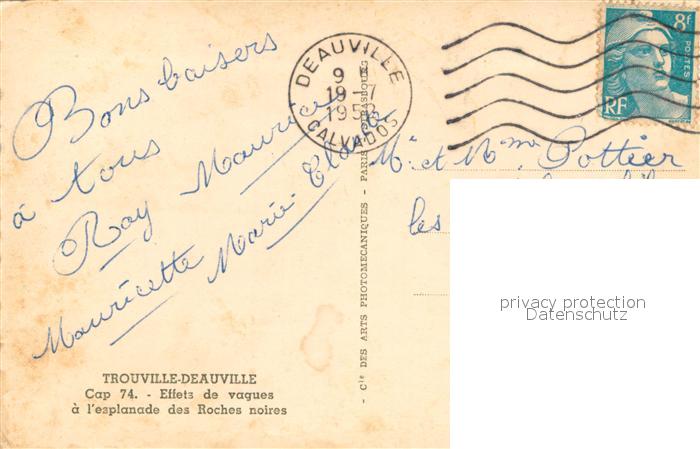 Bons baisers
à tous
Roy Maurice
Mauricette Marie Claude
TROUVILLE-DEAUVILLE
Cap 74. - Effets de vagues
à l'esplanade des Roches noires
- Cie DES ARTS PHOTOMECANIQUES - PARIS - STRASBOURG
DEAUVILLE
9
19-7
CALVADOS
8f
POSTES
RF
Mr et Mme Pottier
les
privacy protection
Datenschutz